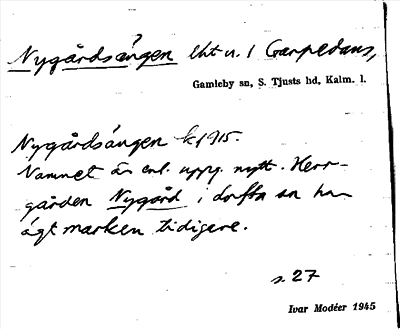 Nygårdsängen lht u. 1 Garpedans,
Gamleby sn, S. Tjusts hd, Kalm. l.
Nygårdsängen k 1915.
Namnet är enl. uppg. nytt. Herr-
gården Nygård i dorfta sn har
ägt marken tidigare.
s. 27
Ivar Modéer 1945